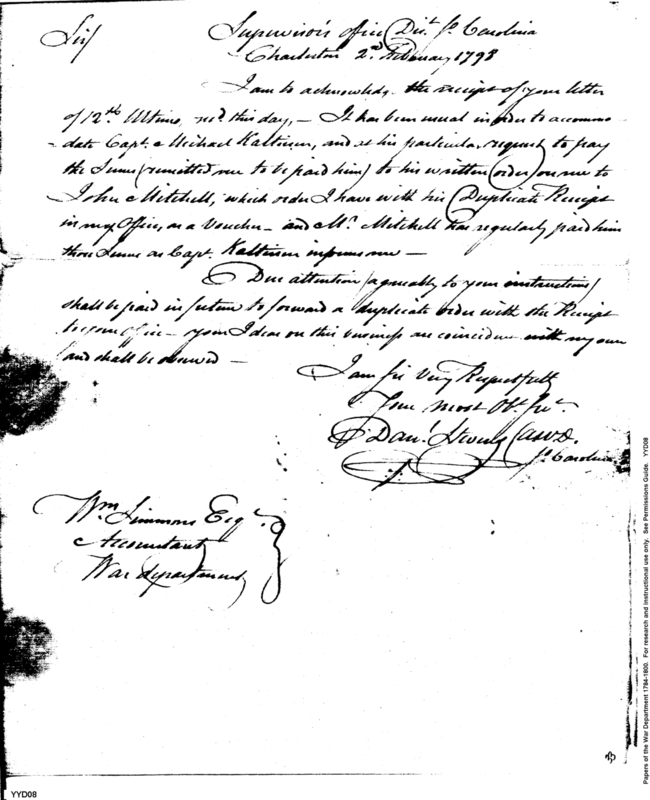 Sir/ Supervisor's office Dist. So. Carolina
Charleston 2nd February 1798
I am to acknowledge the receipt of your letter
of 12th Ultimo, rec'd this day, – It has been usual in order to accommo
- date Capt. Michael Kalteisen, and at his particular request to pay
the Sums (remitted me to be paid him) to his written order on me to
John Mitchell, which order I have with his Duplicate Receipt
in my Office, as a Voucher – and Mr. Mitchell has regularly paid him
those Sums as Capt. Kalteisen informs me –
Due attention (agreeably to your instructions)
shall be paid in future to forward a duplicate order with the Receipt
to your office – your Ideas on this business are coincident with my own
and shall be observed –
I am Sir Very Respectfully
Your most Obt. Sert.
Danl. Stevens
So. Carolina
Wm. Simmons Esqr.
Accountant
War department
YYD08
Papers of the War Department 1784-1800. For research and instructional use only. See Permissions Guide. YYD08